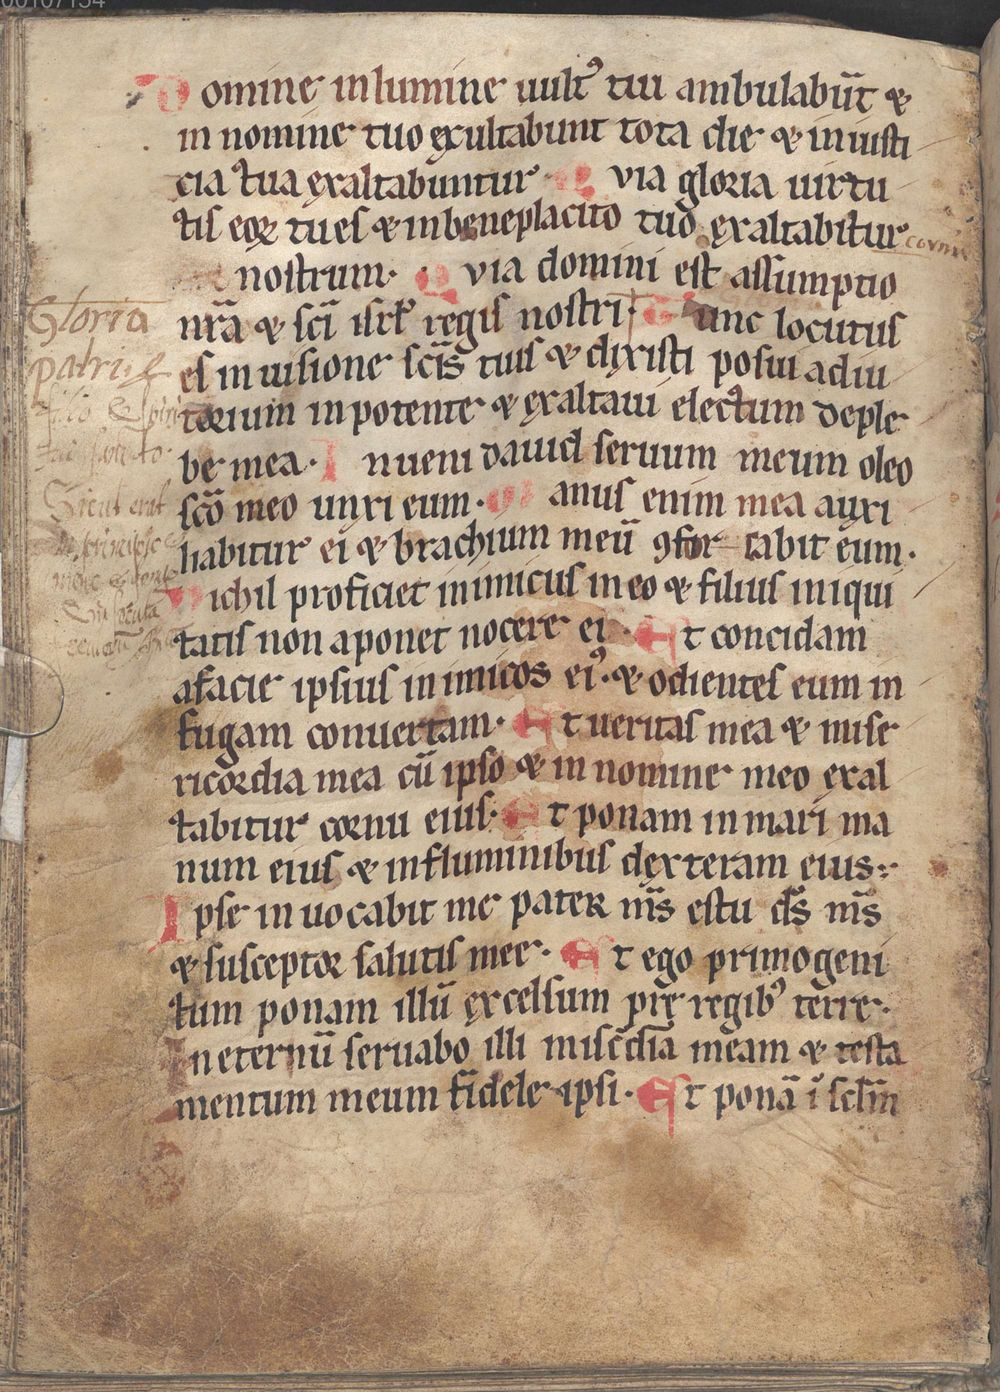 00107154
Domine in lumine uult᷒ tui ambulabūt &
in nomine tuo exultabunt tota die & in iusti
cia tua exaltabuntur. Q via gloria uirtu
tis eoꝝ tu es & in beneplacito tuo exaltabitur cornu
nostrum. Q via domini est assumptio
nr̄a & sc̄i isrł regis nostri. T unc locutus
es in uisione sc̄is tuis & dixisti posui adiu
torium in potente & exaltaui electum de ple
be mea. I nueni dauid seruum meum oleo
sc̄o meo unxi eum. M anus enim mea auxi
habitur ei & brachium meū ꝯfor tabit eum.
N ichil proficiet inimicus in eo & filius iniqui
tatis non aponet nocere ei. E t concidam
a facie ipsius inimicos ei᷒. & odientes eum in
fugam conuertam. E t ueritas mea & mise
ricordia mea cū ipso & in nomine meo exal
tabitur cornu eius. E t ponam in mari ma
num eius & in fluminibus dexteram eius.
I pse inuocabit me pater m̄s es tu ds̄ m̄s
& susceptor salutis mee. E t ego primogeni
tum ponam illū excelsum pre regib᷒ terre.
I n eternū seruabo illi misc̄dia meam & testa
mentum meum fidele ipsi. E t ponā ī scłm
Gloria
patri. &
filio & spiri
tui sancto.
Sicut erat
in principio
nunc & semp